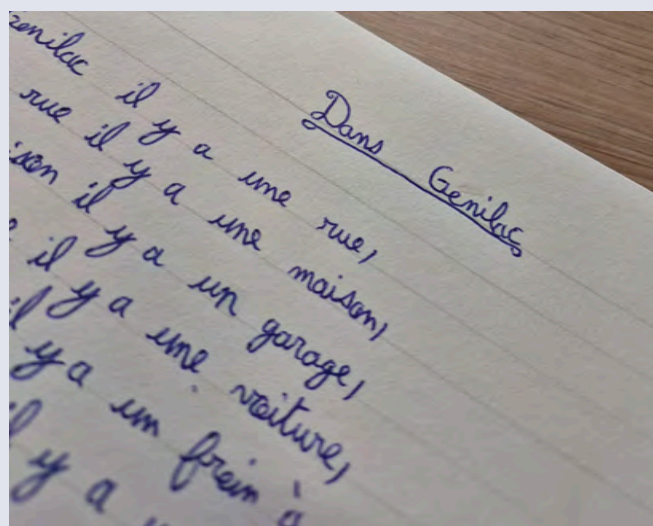 Dans Genilac
Genilac il y a une rue,
rue il y a une maison,
il y a un garage,
il y a une voiture,
il y a un frein à
il y a